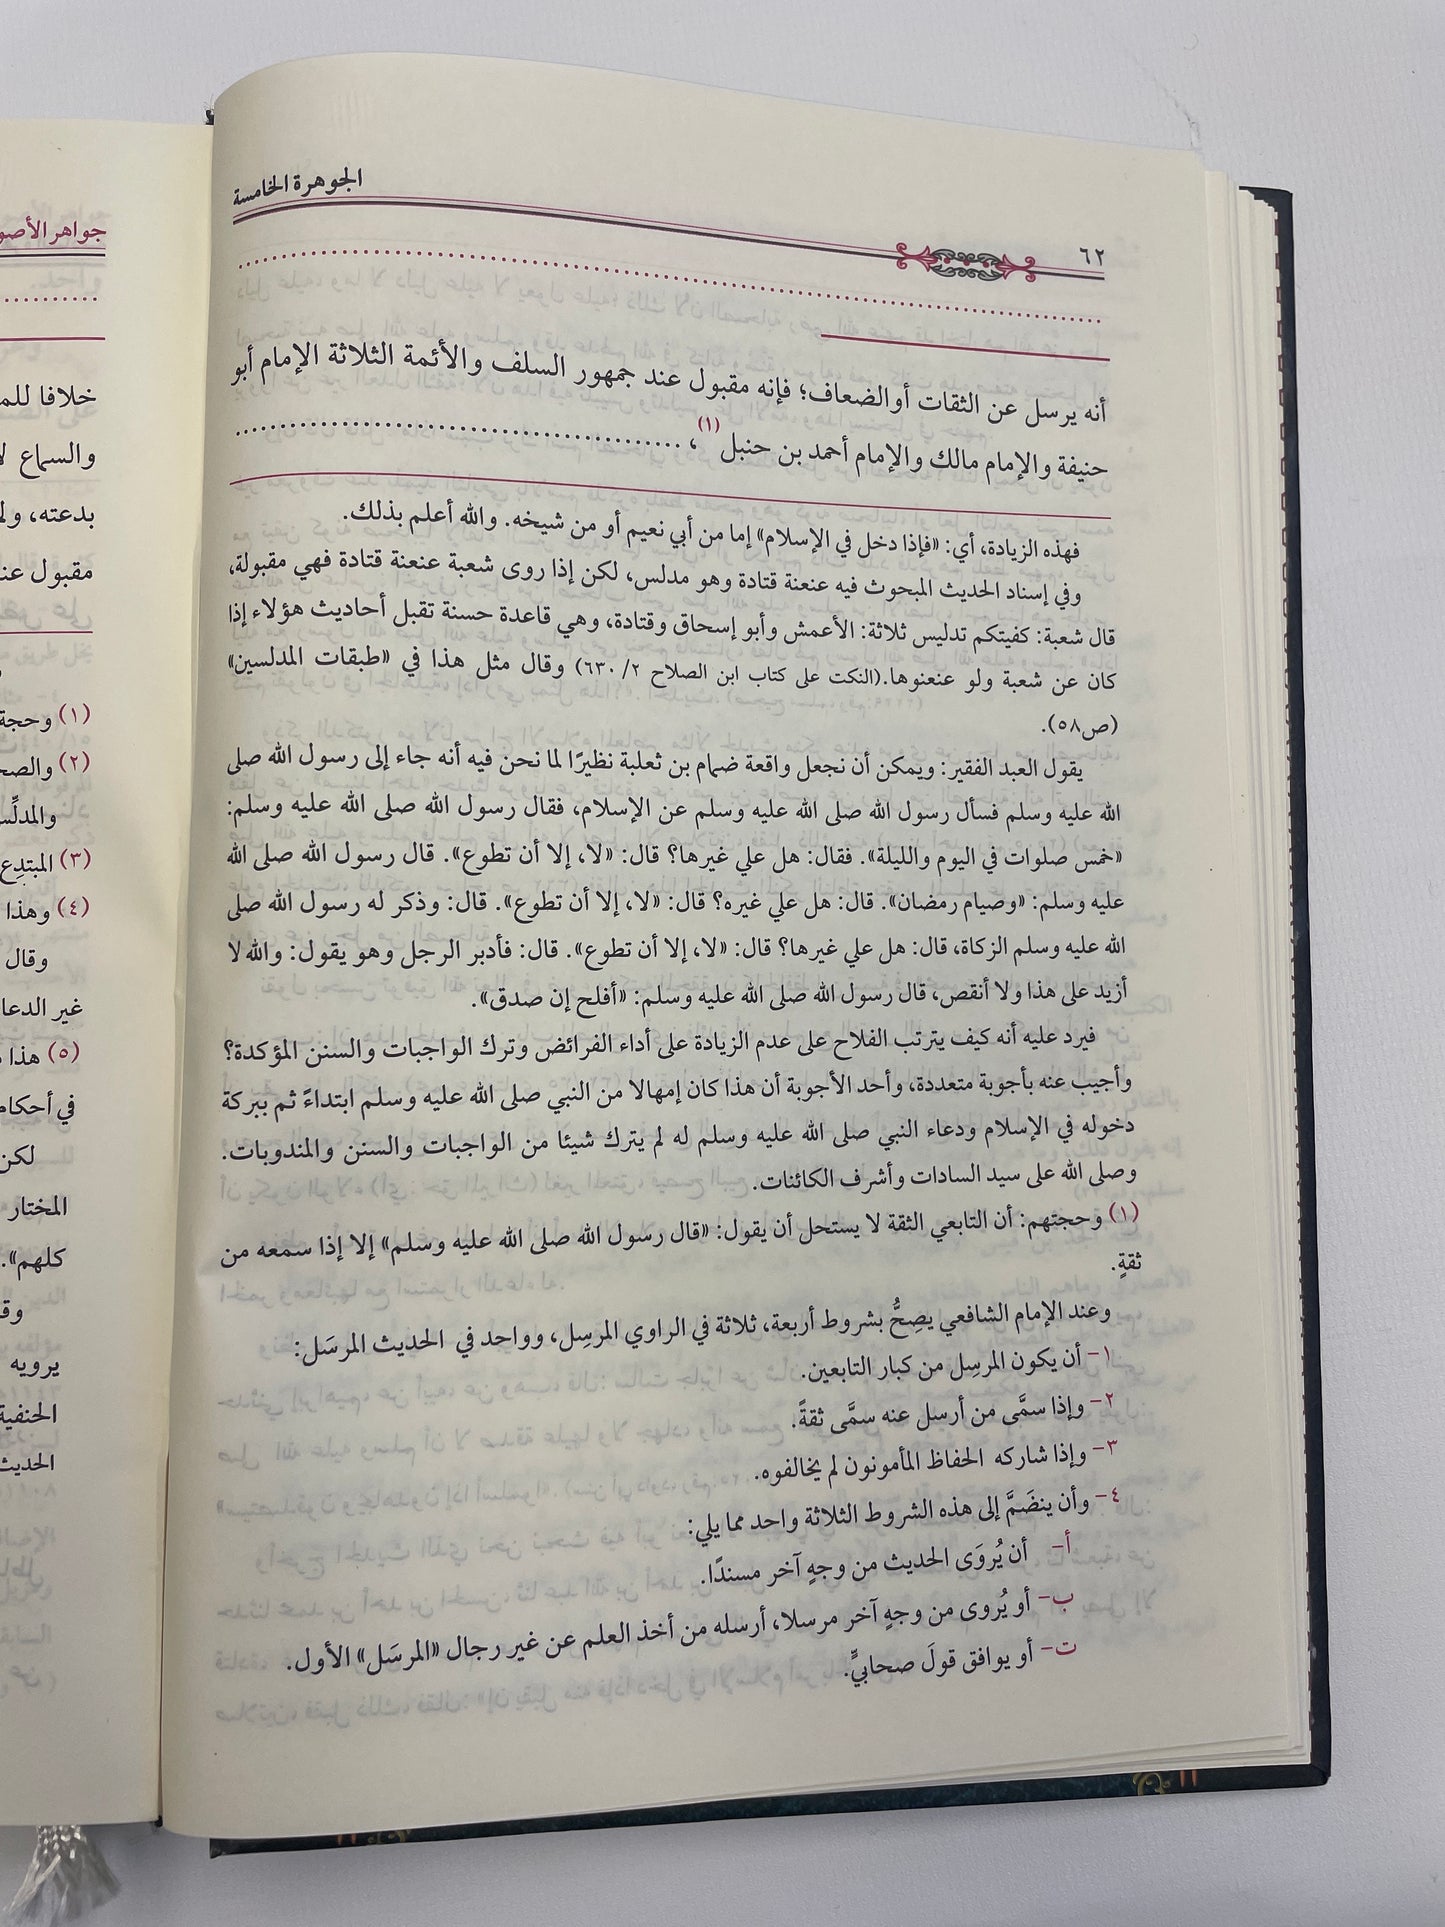 الجوهرة الخامسة
٦٢
أنه يرسل عن الثقات أوالضعاف؛ فإنه مقبول عند جمهور السلف والأئمة الثلاثة الإمام أبو
حنيفة والإمام مالك والإمام أحمد بن حنبل(١)، ................................................
فهذه الزيادة، أي: «فإذا دخل في الإسلام» إما من أبي نعيم أو من شيخه. والله أعلم بذلك.
وفي إسناد الحديث المبحوث فيه عنعنة قتادة وهو مدلس، لكن إذا روى شعبة عنعنة قتادة فهي مقبولة،
قال شعبة: كفيتكم تدليس ثلاثة: الأعمش وأبو إسحاق وقتادة، وهي قاعدة حسنة تقبل أحاديث هؤلاء إذا
كان عن شعبة ولو عنعنوها.(النكت على كتاب ابن الصلاح ٢/ ٦٣٠) وقال مثل هذا في «طبقات المدلسين»
(ص٥٨).
يقول العبد الفقير: ويمكن أن نجعل واقعة ضمام بن ثعلبة نظيرًا لما نحن فيه أنه جاء إلى رسول الله صلى
الله عليه وسلم فسأل رسول الله صلى الله عليه وسلم عن الإسلام، فقال رسول الله صلى الله عليه وسلم:
«خمس صلوات في اليوم والليلة». فقال: هل علي غيرها؟ قال: «لا، إلا أن تطوع». قال رسول الله صلى الله
عليه وسلم: «وصيام رمضان». قال: هل علي غيره؟ قال: «لا، إلا أن تطوع». قال: وذكر له رسول الله صلى
الله عليه وسلم الزكاة، قال: هل علي غيرها؟ قال: «لا، إلا أن تطوع». قال: فأدبر الرجل وهو يقول: والله لا
أزيد على هذا ولا أنقص، قال رسول الله صلى الله عليه وسلم: «أفلح إن صدق».
فيرد عليه أنه كيف يترتب الفلاح على عدم الزيادة على أداء الفرائض وترك الواجبات والسنن المؤكدة؟
وأجيب عنه بأجوبة متعددة، وأحد الأجوبة أن هذا كان إمهالا من النبي صلى الله عليه وسلم ابتداءً ثم ببركة
دخوله في الإسلام ودعاء النبي صلى الله عليه وسلم له لم يترك شيئا من الواجبات والسنن والمندوبات.
وصلى الله على سيد السادات وأشرف الكائنات.
(١) وحجتهم: أن التابعي الثقة لا يستحل أن يقول: «قال رسول الله صلى الله عليه وسلم» إلا إذا سمعه من
ثقةٍ.
وعند الإمام الشافعي يصِحُّ بشروط أربعة، ثلاثة في الراوي المرسِل، وواحد في الحديث المرسَل:
١- أن يكون المرسِل من كبار التابعين.
٢- وإذا سمَّى من أرسل عنه سمَّى ثقةً.
٣- وإذا شاركه الحفاظ المأمونون لم يخالفوه.
٤- وأن ينضَمَّ إلى هذه الشروط الثلاثة واحد مما يلي:
أ- أن يُروَى الحديث من وجهٍ آخر مسندًا.
ب- أو يُروى من وجهٍ آخر مرسلا، أرسله من أخذ العلم عن غير رجال «المرسَل» الأول.
ت- أو يوافق قولَ صحابيٍّ.
جواهر الأصو
خلافا للم
والسماع لا
بدعته، ول
مقبول عند
(١) وحجة
(٢) والصح
والمدلِّس
(٣) المبتدِع
(٤) وهذا
وقال
غير الدعا
(٥) هذا
في أحكام
لكن
المختار
كلهم».
وق
يرويه
الحنفية
الحديث